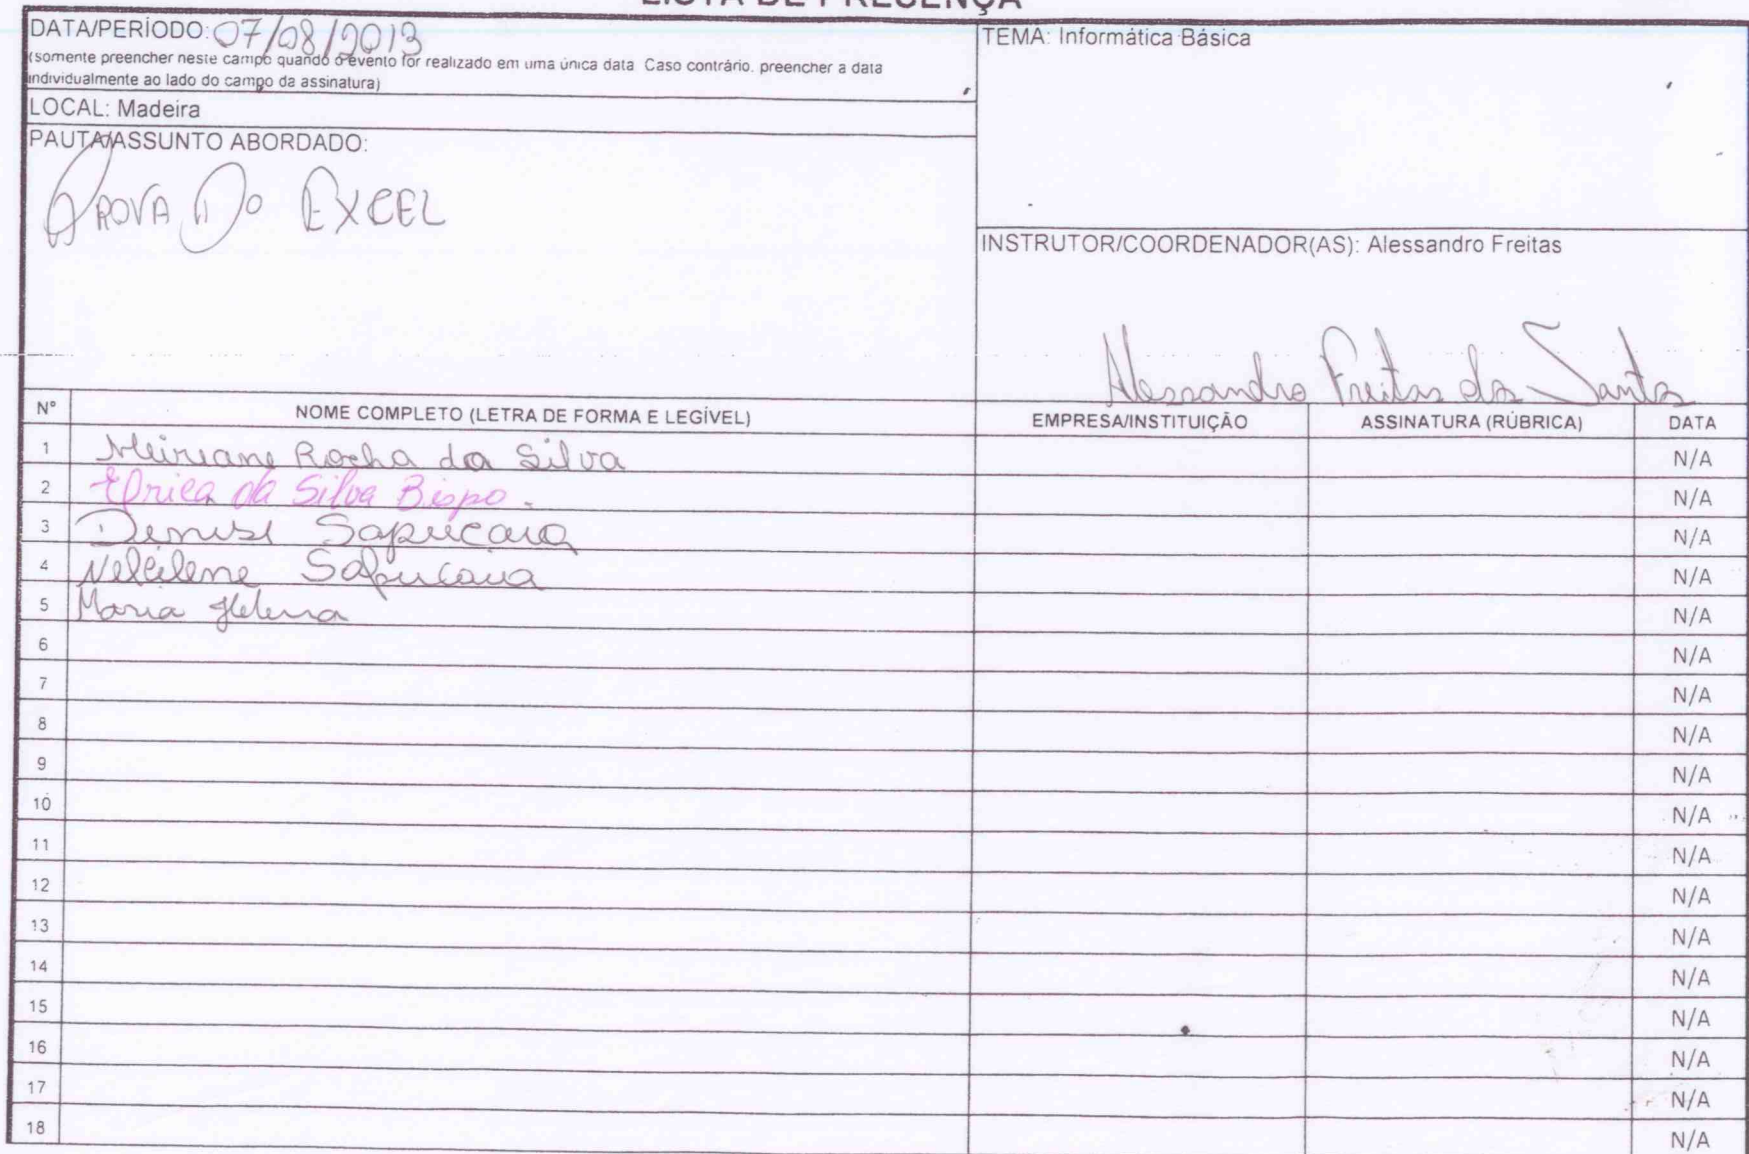 LISTA DE PRESENÇA
DATA/PERÍODO: 07/08/2013
(somente preencher neste campo quando o evento for realizado em uma única data. Caso contrário, preencher a data
individualmente ao lado do campo da assinatura)
TEMA: Informática Básica
LOCAL: Madeira
PAUTA/ASSUNTO ABORDADO:
PROVA DO EXCEL
INSTRUTOR/COORDENADOR(AS): Alessandro Freitas
Alessandro Freitas dos Santos
Nº NOME COMPLETO (LETRA DE FORMA E LEGÍVEL) EMPRESA/INSTITUIÇÃO ASSINATURA (RÚBRICA) DATA
1 Meiriane Rocha da Silva N/A
2 da Silva Bispo. N/A
3 Denise Sapucaia N/A
4 Sapucaia N/A
5 Maria Helena N/A
6 N/A
7 N/A
8 N/A
9 N/A
10 N/A
11 N/A
12 N/A
13 N/A
14 N/A
15 N/A
16 N/A
17 N/A
18 N/A